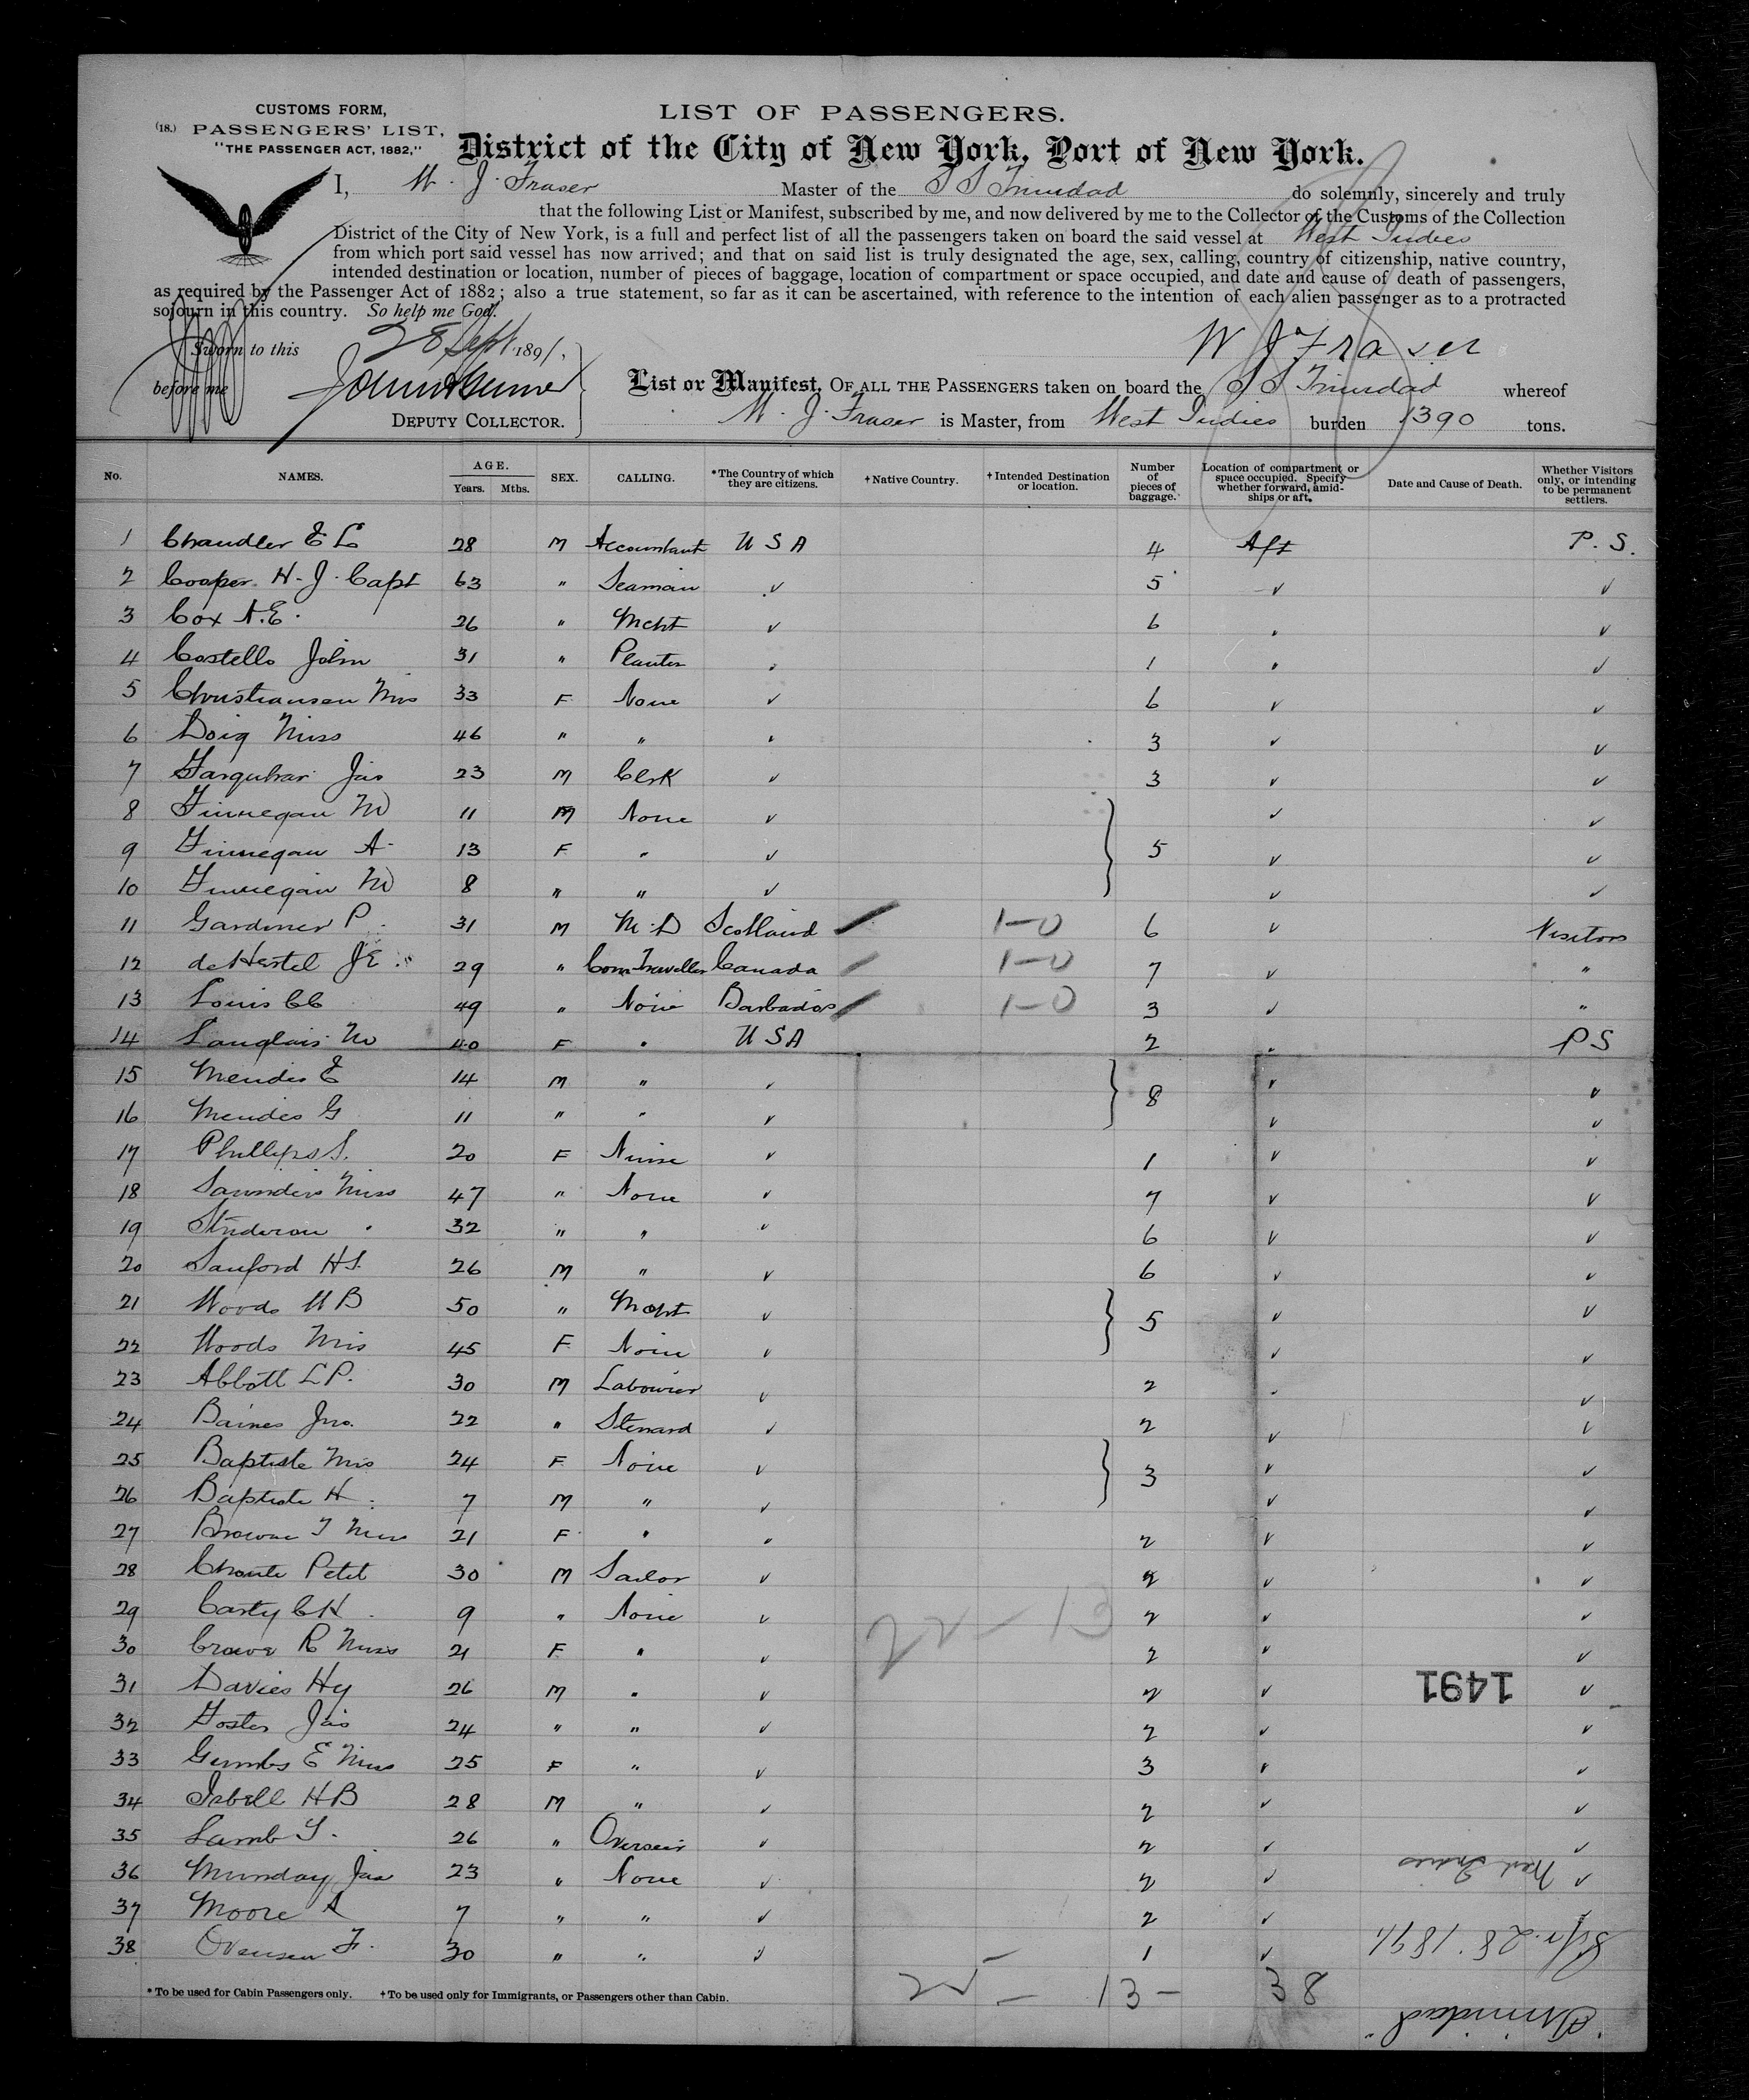 CUSTOMS FORM,
(18.) PASSENGERS' LIST,
"THE PASSENGER ACT, 1882,"
LIST OF PASSENGERS.
District of the City of New York, Port of New York.
I, W. J. Fraser Master of the S S Trinidad do solemnly, sincerely and truly
that the following List or Manifest, subscribed by me, and now delivered by me to the Collector of the Customs of the Collection
District of the City of New York, is a full and perfect list of all the passengers taken on board the said vessel at West Indies
from which port said vessel has now arrived; and that on said list is truly designated the age, sex, calling, country of citizenship, native country,
intended destination or location, number of pieces of baggage, location of compartment or space occupied, and date and cause of death of passengers,
as required by the Passenger Act of 1882; also a true statement, so far as it can be ascertained, with reference to the intention of each alien passenger as to a protracted
sojourn in this country. So help me God.
Sworn to this 28 Sept 1891,
W J Fraser
before me
DEPUTY COLLECTOR.
List or Manifest, OF ALL THE PASSENGERS taken on board the S S Trinidad whereof
W. J. Fraser is Master, from West Indies burden 1390 tons.
No. NAMES. AGE. Years. Mths. SEX. CALLING. *The Country of which they are citizens. †Native Country. †Intended Destination or location. Number of pieces of baggage. Location of compartment or space occupied. Specify whether forward, amidships or aft. Date and Cause of Death. Whether Visitors only, or intending to be permanent settlers.
1 Chandler E L 28 M Accountant U S A 4 Aft P. S.
2 Cooper H. J. Capt 63 " Seaman ✓ 5 ✓ ✓
3 Cox A. E. 26 " Mcht ✓ 6 " ✓
4 Costello John 31 " Planter " 1 " ✓
5 Christiansen Mrs 33 F None ✓ 6 ✓ ✓
6 Doig Miss 46 " " " 3 ✓ ✓
7 Farquhar Jas 23 M Clerk ✓ 3 ✓ ✓
8 Finnegan M 11 M None ✓ ✓ ✓
9 Finnegan A 13 F " ✓ 5 ✓ ✓
10 Finnegan M 8 " " ✓ ✓ ✓
11 Gardiner P. 31 M M.D Scotland 1-0 6 ✓ Visitors
12 de Hertel J E 29 " Com Traveller Canada 1-0 7 ✓ "
13 Louis C C 49 " None Barbados 1-0 3 ✓ "
14 Langlais M 40 F " U S A 2 " P S
15 Mendes E 14 M " ✓ 8 ✓ ✓
16 Mendes G 11 " " ✓ ✓ ✓
17 Phillips S. 20 F Nurse ✓ 1 ✓ ✓
18 Saunders Miss 47 " None ✓ 7 ✓ ✓
19 32 " " ✓ 6 ✓ ✓
20 Sanford H S. 26 M " ✓ 6 ✓ ✓
21 Woods W B 50 " Mcht ✓ 5 ✓ ✓
22 Woods Mrs 45 F None ✓ ✓ ✓
23 Abbott L P. 30 M Labourer ✓ 2 " ✓
24 Baines Jno. 22 " Steward ✓ 2 ✓ ✓
25 Baptiste Mrs 24 F None ✓ 3 ✓ ✓
26 Baptiste H. 7 M " ✓ ✓ ✓
27 Browne T Miss 21 F " " 2 ✓ ✓
28 Petit 30 M Sailor ✓ 2 ✓ ✓
29 Carty C H 9 " None ✓ 2 ✓ ✓
22 - 13
30 Crowe R Miss 21 F " ✓ 2 ✓ ✓
31 Davies Hy 26 M " ✓ 2 ✓ ✓
1491
32 Foster Jas 24 " " ✓ 2 ✓ ✓
33 Gumbs E Miss 25 F " ✓ 3 ✓ ✓
34 Isbell H B 28 M " ✓ 2 ✓ ✓
35 Lamb T. 26 " Overseer ✓ 2 ✓ ✓
36 Munday Jas 23 " None ✓ 2 ✓ ✓
West Indies
37 Moore A 7 " " ✓ 2 ✓ ✓
38 Ovensen F. 30 " " ✓ 1 ✓
Sept. 28. 1891
* To be used for Cabin Passengers only. †To be used only for Immigrants, or Passengers other than Cabin.
13 - 38
"Trinidad"